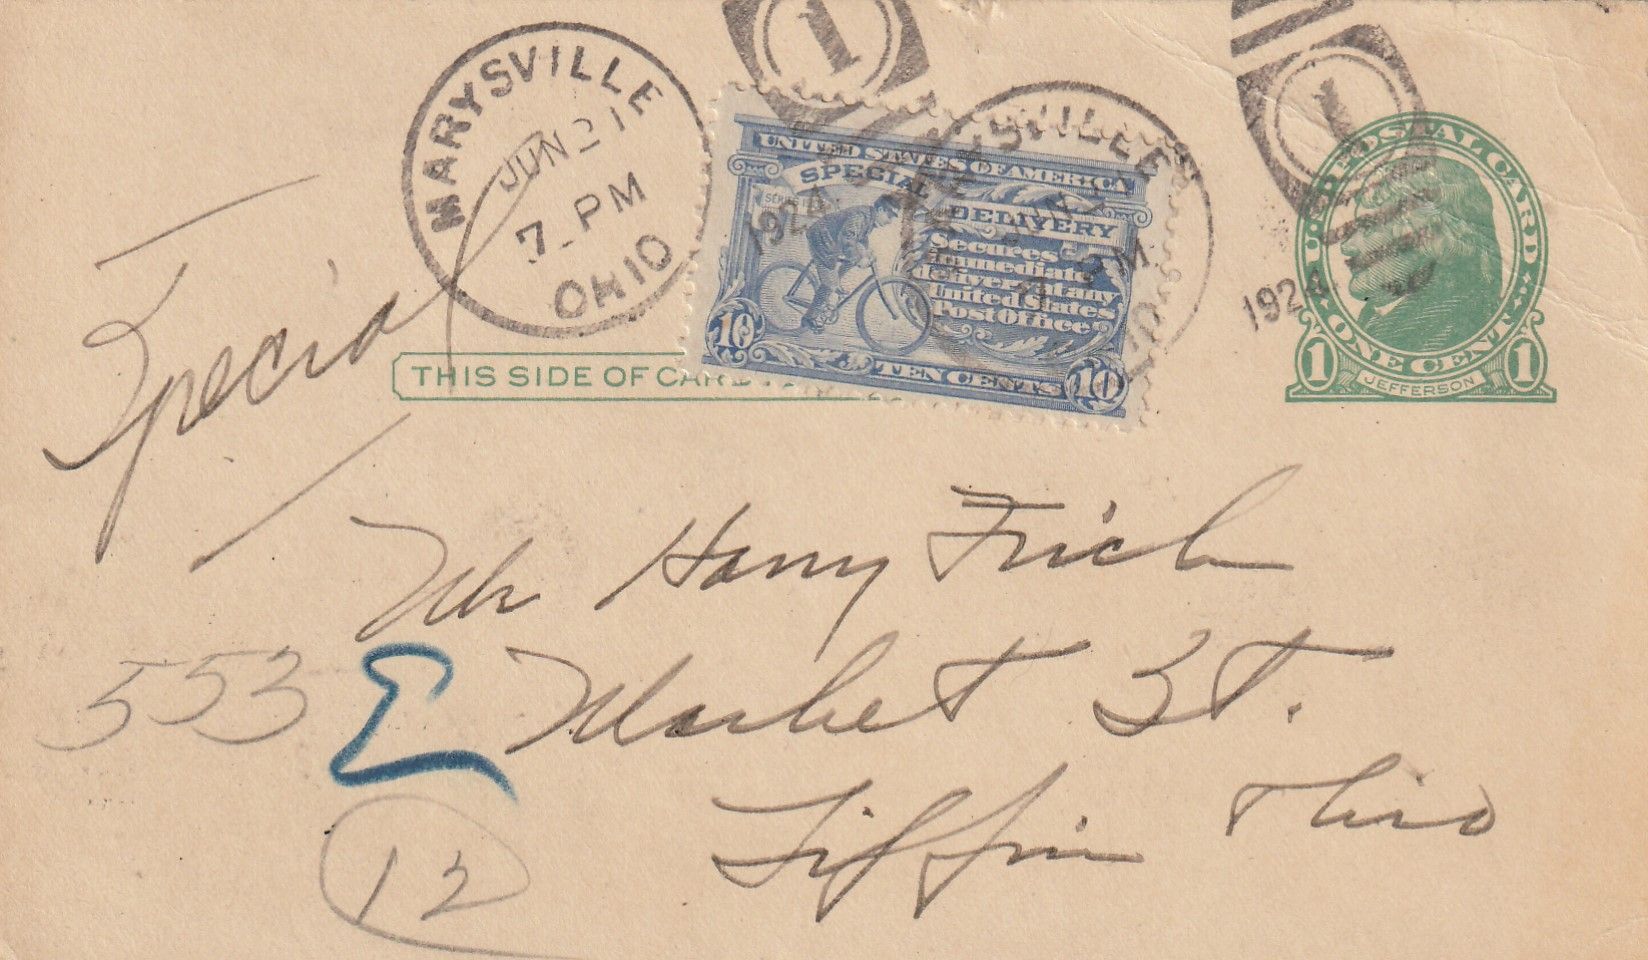 MARYSVILLE
JUN 21
7-PM
OHIO
1
1924
1
1924
UNITED STATES OF AMERICA
SPECIAL
DELIVERY
Secures
immediate
delivery at any
United States
Post Office
10
TEN CENTS
10
U.S. POSTAL CARD
1 ONE CENT 1
JEFFERSON
THIS SIDE OF CARD
Special
Mr Harry Frich
553 E Market St.
Tiffin Ohio
12